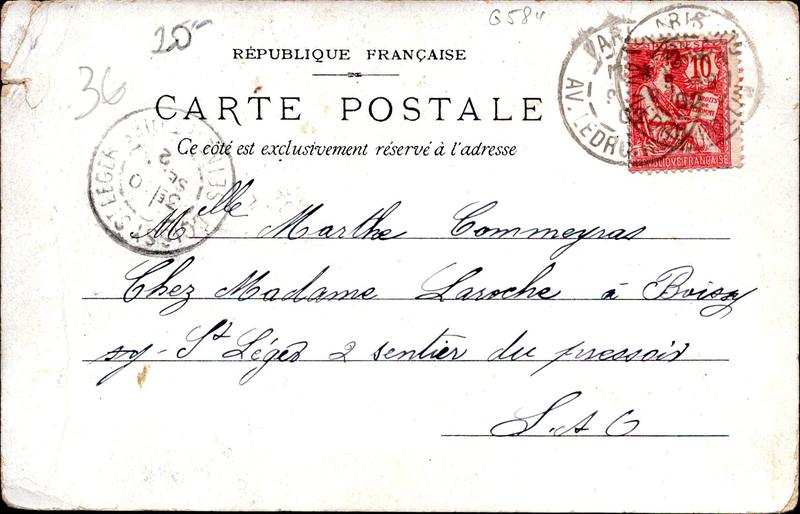 25-
G584
36
RÉPUBLIQUE FRANÇAISE
CARTE POSTALE
Ce côté est exclusivement réservé à l'adresse
10
RÉPUBLIQUE FRANÇAISE
PARIS
AV. LEDRU
BOISSY-ST-LEGER
Mlle Marthe Commeyras
Chez Madame Laroche à Boissy
sy-St Léger 2 sentier du pressoir
S. & O